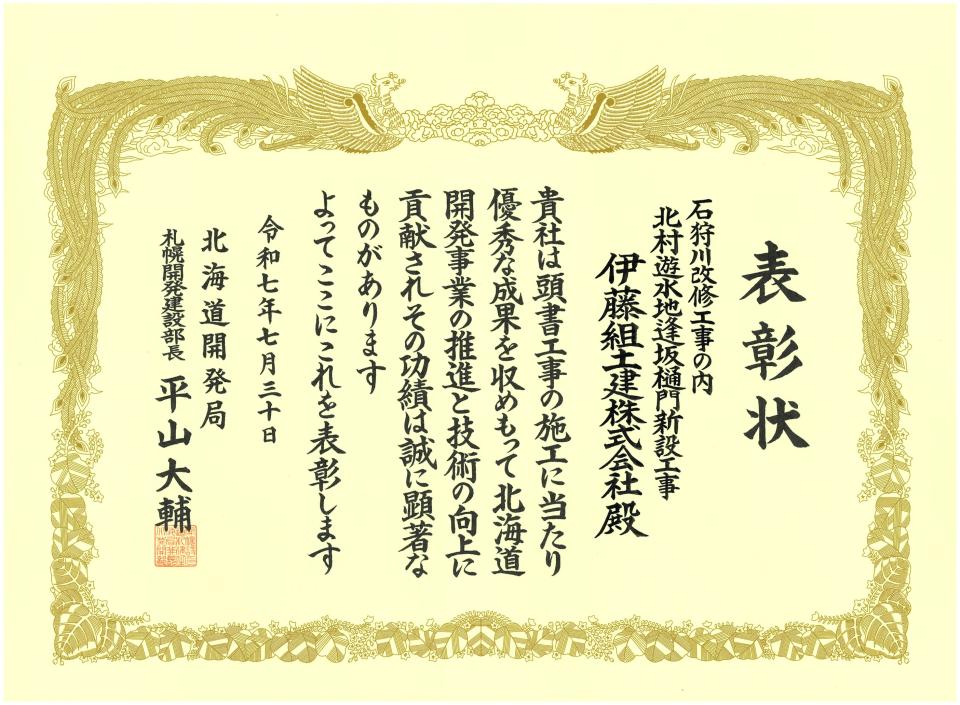 表彰状
石狩川改修工事の内
北村遊水地逢坂樋門新設工事
伊藤組土建株式会社殿
貴社は頭書工事の施工に当たり
優秀な成果を収めもって北海道
開発事業の推進と技術の向上に
貢献されその功績は誠に顕著な
ものがあります
よってここにこれを表彰します
令和七年七月三十日
北海道開発局
札幌開発建設部長 平山大輔